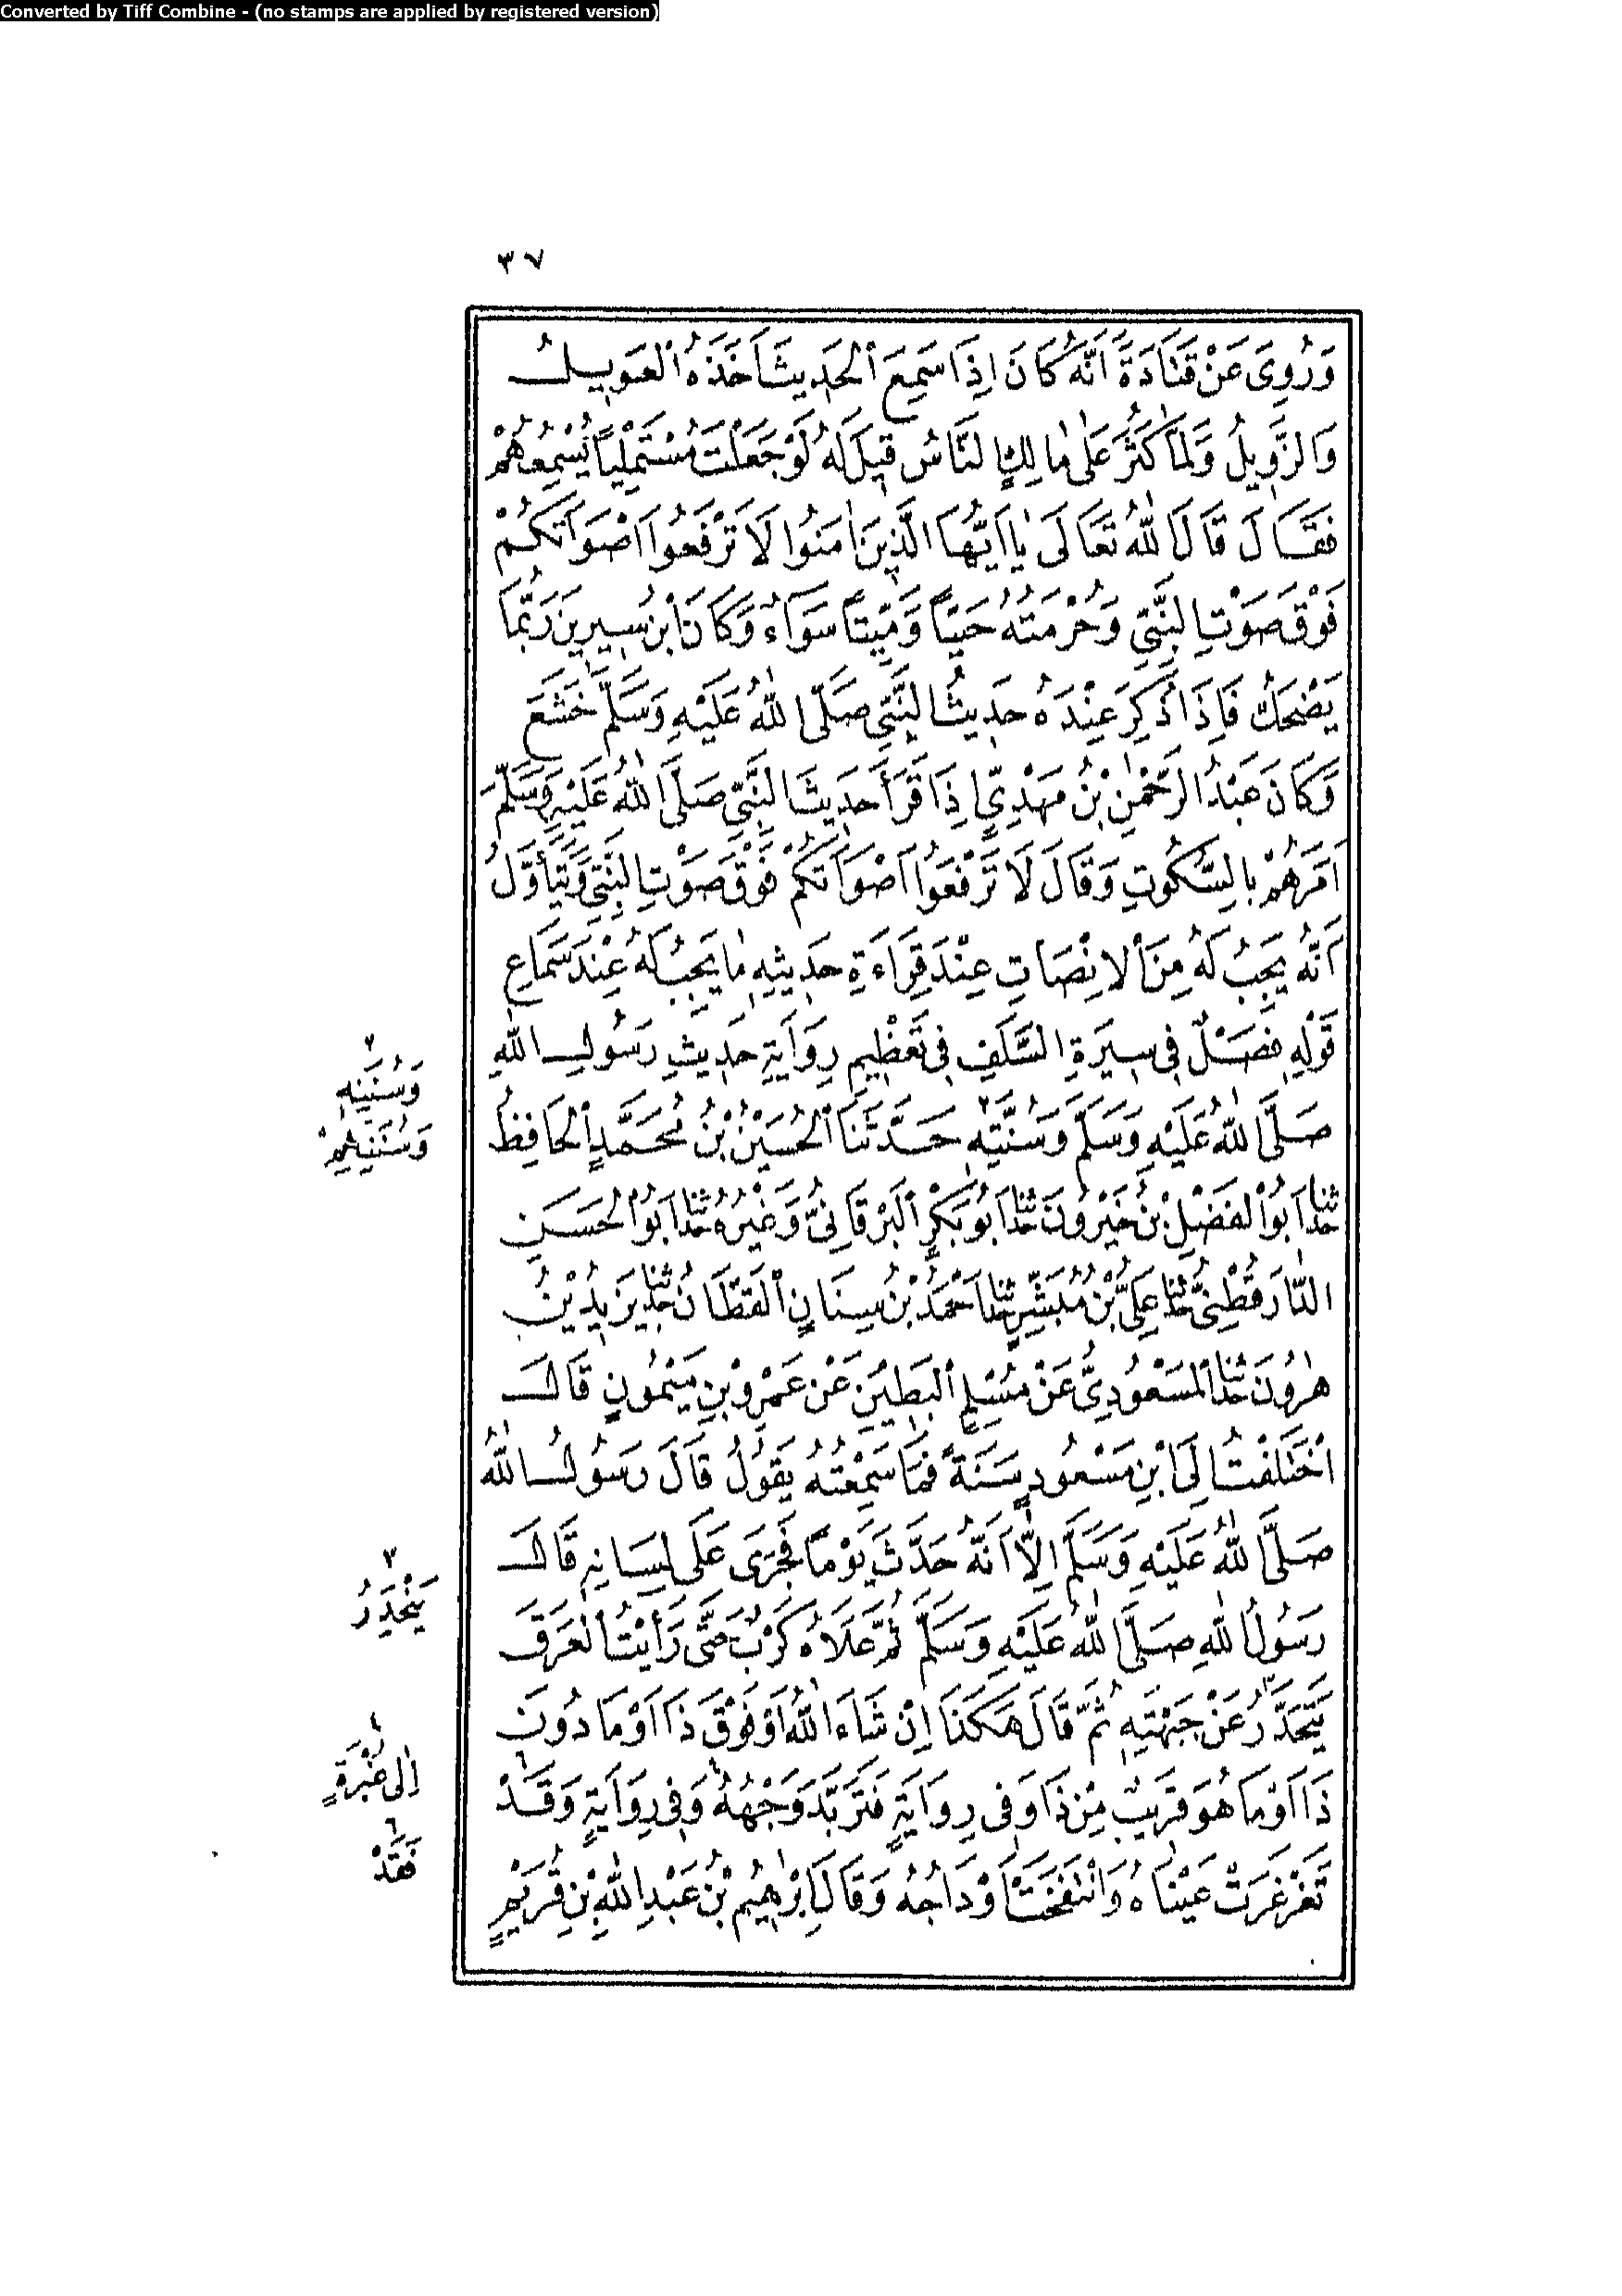 Converted by Tiff Combine - (no stamps are applied by registered version)
٣٧
وَرُوِىَ عَنْ قَتَادَةَ اَنَّهُ كَانَ اِذَا سَمِعَ الْحَدِيثَ اَخَذَهُ الْعَوِيلُ
وَالزَّوِيلُ وَلَمَّا كَثُرَ عَلٰى مَالِكٍ النَّاسُ قِيلَ لَهُ لَوْ جَعَلْتَ مُسْتَمْلِياً يُسْمِعُهُمْ
فَقَالَ قَالَ اللهُ تَعَالَى يَا اَيُّهَا الَّذِينَ اٰمَنُوا لَا تَرْفَعُوا اَصْوَاتَكُمْ
فَوْقَ صَوْتِ النَّبِىِّ وَحُرْمَتُهُ حَيّاً وَمَيِّتاً سَوَاءٌ وَكَانَ ابْنُ سِيرِينَ رُبَّمَا
يَضْحَكُ فَاِذَا ذُكِرَ عِنْدَهُ حَدِيثُ النَّبِىِّ صَلَّى اللهُ عَلَيْهِ وَسَلَّمَ خَشَعَ
وَكَانَ عَبْدُ الرَّحْمٰنِ بْنُ مَهْدِيٍّ اِذَا قَرَأَ حَدِيثَ النَّبِىِّ صَلَّى اللهُ عَلَيْهِ وَسَلَّمَ
اَمَرَهُمْ بِالسُّكُوتِ وَقَالَ لَا تَرْفَعُوا اَصْوَاتَكُمْ فَوْقَ صَوْتِ النَّبِىِّ وَيَتَأَوَّلُ
اَنَّهُ يَجِبُ لَهُ مِنَ الْاِنْصَاتِ عِنْدَ قِرَاءَةِ حَدِيثِهِ مَا يَجِبُ لَهُ عِنْدَ سَمَاعِ
قَوْلِهِ فَصْلٌ فِى سِيرَةِ السَّلَفِ فِى تَعْظِيمِ رِوَايَةِ حَدِيثِ رَسُولِ اللهِ
صَلَّى اللهُ عَلَيْهِ وَسَلَّمَ وَسُنَّتِهِ ٢ حَدَّثَنَا الْحُسَيْنُ بْنُ مُحَمَّدٍ الْحَافِظُ
حَدَّثَنَا اَبُو الْفَضْلِ بْنُ خَيْرُونَ حَدَّثَنَا اَبُو بَكْرٍ الْبَرْقَانِىُّ وَغَيْرُهُ حَدَّثَنَا اَبُو الْحَسَنِ
الدَّارَقُطْنِىُّ حَدَّثَنَا عَلِىُّ بْنُ مُبَشِّرٍ حَدَّثَنَا اَحْمَدُ بْنُ سِنَانٍ الْقَطَّانُ حَدَّثَنَا يَزِيدُ بْنُ
هٰرُونَ حَدَّثَنَا الْمَسْعُودِىُّ عَنْ مُسْلِمٍ الْبَطِينِ عَنْ عَمْرِو بْنِ مَيْمُونٍ قَالَ
اخْتَلَفْتُ اِلَى ابْنِ مَسْعُودٍ سَنَةً فَمَا سَمِعْتُهُ يَقُولُ قَالَ رَسُولُ اللهِ
صَلَّى اللهُ عَلَيْهِ وَسَلَّمَ اِلَّا اَنَّهُ حَدَّثَ يَوْماً فَجَرَى عَلَى لِسَانِهِ قَالَ
رَسُولُ اللهِ صَلَّى اللهُ عَلَيْهِ وَسَلَّمَ ثُمَّ عَلَاهُ كَرْبٌ حَتَّى رَأَيْتُ الْعَرَقَ
يَتَحَدَّرُ عَنْ جَبْهَتِهِ ثُمَّ قَالَ هٰكَذَا اِنْ شَاءَ اللهُ اَوْ فَوْقَ ذَا اَوْ مَا دُونَ
ذَا اَوْ مَا هُوَ قَرِيبٌ مِنْ ذَا وَفِى رِوَايَةٍ فَتَرَبَّدَ وَجْهُهُ ٤ وَفِى رِوَايَةٍ وَقَدْ ٦
تَغَرْغَرَتْ عَيْنَاهُ وَانْتَفَخَتْ اَوْدَاجُهُ وَقَالَ اِبْرٰهِيمُ بْنُ عَبْدِ اللهِ بْنِ قُرَيْمٍ
٢
وَسُنَنِهِ
وَسُنَنِهِمْ
٣
يَنْحَدِرُ
٤
اِلٰى غُبْرَةٍ
٦
فَقَدْ